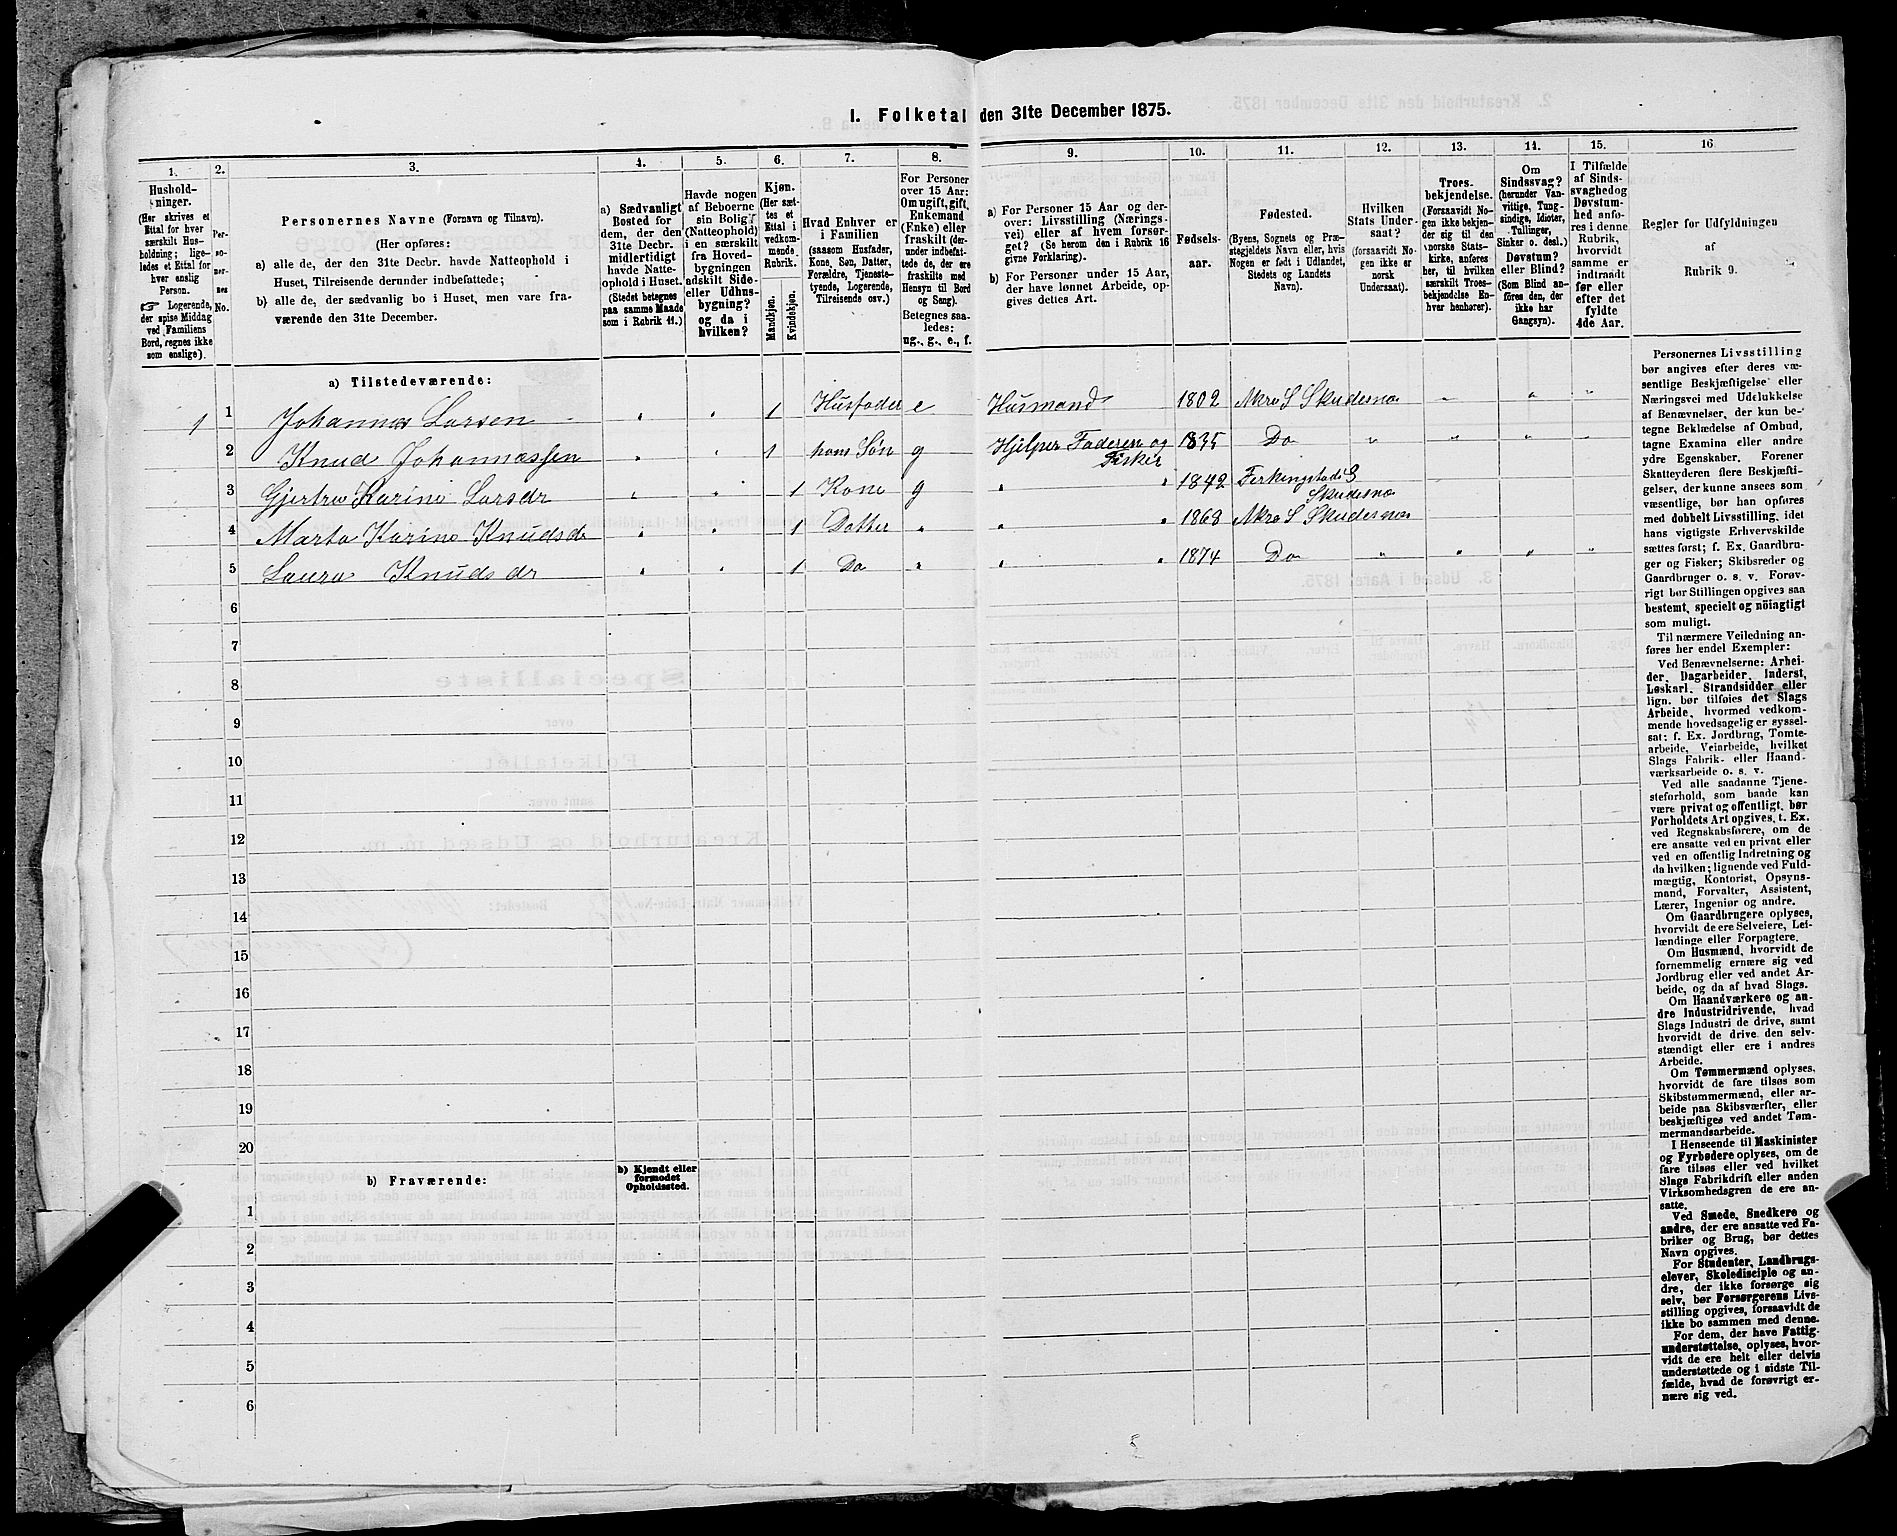 1. Folketal den 31te December 1875.
1. 2. 3. 4. 5. 6. 7. 8. 9. 10. 11. 12. 13. 14. 15. 16
Hushold-
ninger.
(Her skrives et
Ettal for hver
særskilt Hus-
holdning; lige-
ledes et Ettal for
hver enslig
Person.
☞ Logerende,
der spise Middag
ved Familiens
Bord, regnes ikke
som enslige).
Per-
so-
ner-
nes
No.
Personernes Navne (Fornavn og Tilnavn).
(Her opføres:
a) alle de, der den 31te Decbr. havde Natteophold i
Huset, Tilreisende derunder indbefattede;
b) alle de, der sædvanlig bo i Huset, men vare fra-
værende den 31te December.
a) Sædvanligt
Bosted for
dem, der den
31te Decbr.
midlertidigt
havde Natte-
ophold i Huset.
(Stedet betegnes
paa samme Maade
som i Rubrik 11.)
Havde nogen
af Beboerne
sin Bolig
(Natteophold)
i en særskilt
fra Hoved-
bygningen
adskilt Side-
eller Udhus-
bygning?
og da i
hvilken?
Kjøn.
(Her sæt-
tes et
Ettal i
vedkom-
mende
Rubrik.
Mandkjøn.
Kvindekjøn.
Hvad Enhver er
i Familien
(saasom Husfader,
Kone, Søn, Datter,
Forældre, Tjeneste-
tyende, Logerende,
Tilreisende osv.)
For Personer
over 15 Aar:
Om ugift, gift,
Enkemand
(Enke) eller
fraskilt (der-
under indbefat-
tede de, der ere
fraskilte med
Hensyn til Bord
og Seng).
Betegnes saa-
ledes:
ug., g., e., f.
a) For Personer 15 Aar og der-
over: Livsstilling (Nærings-
vei) eller af hvem forsør-
get? (Se herom den i Rubrik 16
givne Forklaring).
b) For Personer under 15 Aar,
der have lønnet Arbeide, op-
gives dettes Art.
Fødsels-
aar.
Fødested.
(Byens, Sognets og Præ-
stegjeldets Navn eller, hvis
Nogen er født i Udlandet,
Stedets og Landets
Navn).
Hvilken
Stats Under-
saat?
(forsaavidt No-
gen ikke er
norsk
Undersaat).
Troes-
bekjendelse.
(Forsaavidt No-
gen ikke bekjen-
der sig til den
norske Stats-
kirke, anføres
her, til hvilken
særskilt Troes-
bekjendelse En-
hver henhører).
Om
Sindssvag?
(herunder Van-
vittige, Tung-
sindige, Idioter,
Tullinger,
Sinker o. desl.)
Døvstum?
eller Blind?
(Som Blind an-
føres den, der
ikke har
Gangsyn).
I Tilfælde
af Sinds-
svaghed og
Døvstum-
hed anfø-
res i denne
Rubrik,
hvorvidt
samme er
indtraadt
før eller
efter det
fyldte
4de Aar.
Regler for Udfyldningen
af
Rubrik 9.
a) Tilstedeværende:
1 1 Johannes Larsen " " 1 Husfader e Husmand 1802 Akre S Skudesnæs " " "
2 Knud Johannessen " " 1 hans Søn g Hjelper Faderen og Fisker 1835 Do " " " "
3 Gjertru Karine Larsdr " " 1 Kone g " " 1842 Ferkingstad S Skudesnæs
4 Marta Karine Knudsdr " " 1 Datter " " " 1868 Akre S Skudesnæs
5 Laura Knudsdr " " 1 Do " " " 1874 Do " " " "
6
7
8
9
10
11
12
13
14
15
16
17
18
19
20
b) Fraværende:
b) Kjendt eller
formodet
Opholdssted.
1
2
3
4
5
6
Personernes Livsstilling
bør angives efter deres væ-
sentlige Beskjæftigelse eller
Næringsvei med Udelukkelse
af Benævnelser, der kun be-
tegne Beklædelse af Ombud,
tagne Examina eller andre
ydre Egenskaber. Forener
Skatteyderen flere Beskjæfti-
gelser, der kunne ansees som
væsentlige, bør han opføres
med dobbelt Livsstilling, idet
hans vigtigste Erhvervskilde
sættes først; f. Ex. Gaardbru-
ger og Fisker; Skibsreder og
Gaardbruger o. s. v. Forøv-
rigt bør Stillingen opgives saa
bestemt, specielt og nöiagtigt
som muligt.
Til nærmere Veiledning an-
føres her endel Exempler:
Ved Benævnelserne: Arbei-
der, Dagarbeider, Inderst,
Løskarl, Strandsidder eller
lign. bør tilføies det Slags
Arbeide, hvormed vedkom-
mende hovedsagelig er syssel-
sat; f. Ex. Jordbrug, Tomte-
arbeide, Veiarbeide, hvilket
Slags Fabrik- eller Haand-
værksarbeide o. s. v.
Ved alle saadanne Tjene-
steforhold, som baade kan
være privat og offentligt, bør
Forholdets Art opgives, t. Ex.
ved Regnskabsførere, om de
ere ansatte ved en privat eller
ved en offentlig Indretning og
da hvilken; lignende ved Fuld-
mægtig, Kontorist, Opsyns-
mand, Forvalter, Assistent,
Lærer, Ingeniør og andre.
Om Gaardbrugere oplyses,
hvorvidt de ere Selveiere, Lei-
lændinge eller Forpagtere.
Om Husmænd, hvorvidt de
fornemmelig ernære sig ved
Jordbrug eller ved andet Ar-
beide, og da af hvad Slags.
Om Haandværkere og an-
dre Industridrivende, hvad
Slags Industri de drive, samt
hvorvidt de drive den selv-
stændigt eller ere i andres
Arbeide.
Om Tømmermænd oplyses,
hvorvidt de fare tilsøs som
Skibstømmermænd, eller ar-
beide paa Skibsværfter, eller
beskjæftiges ved andet Tøm-
mermandsarbeide.
I Henseende til Maskinister
og Fyrbødere oplyses, om de
fare tilsøs eller ved hvilket
Slags Fabrikdrift eller anden
Virksomhedsgren de ere an-
satte.
Ved Smede, Snedkere og
andre, der ere ansatte ved Fa-
briker og Brug, bør dettes
Navn opgives.
For Studenter, Landbrugs-
elever, Skoledisciple og an-
dre, der ikke forsørge sig
selv, bør Forsørgerens Livs-
stilling opgives, forsaavidt de
ikke bo sammen med denne.
For dem, der have Fattig-
understøttelse, oplyses, hvor-
vidt de ere helt eller delvis
understøttede og i sidste Til-
fælde, hvad de forøvrigt er-
nære sig ved.